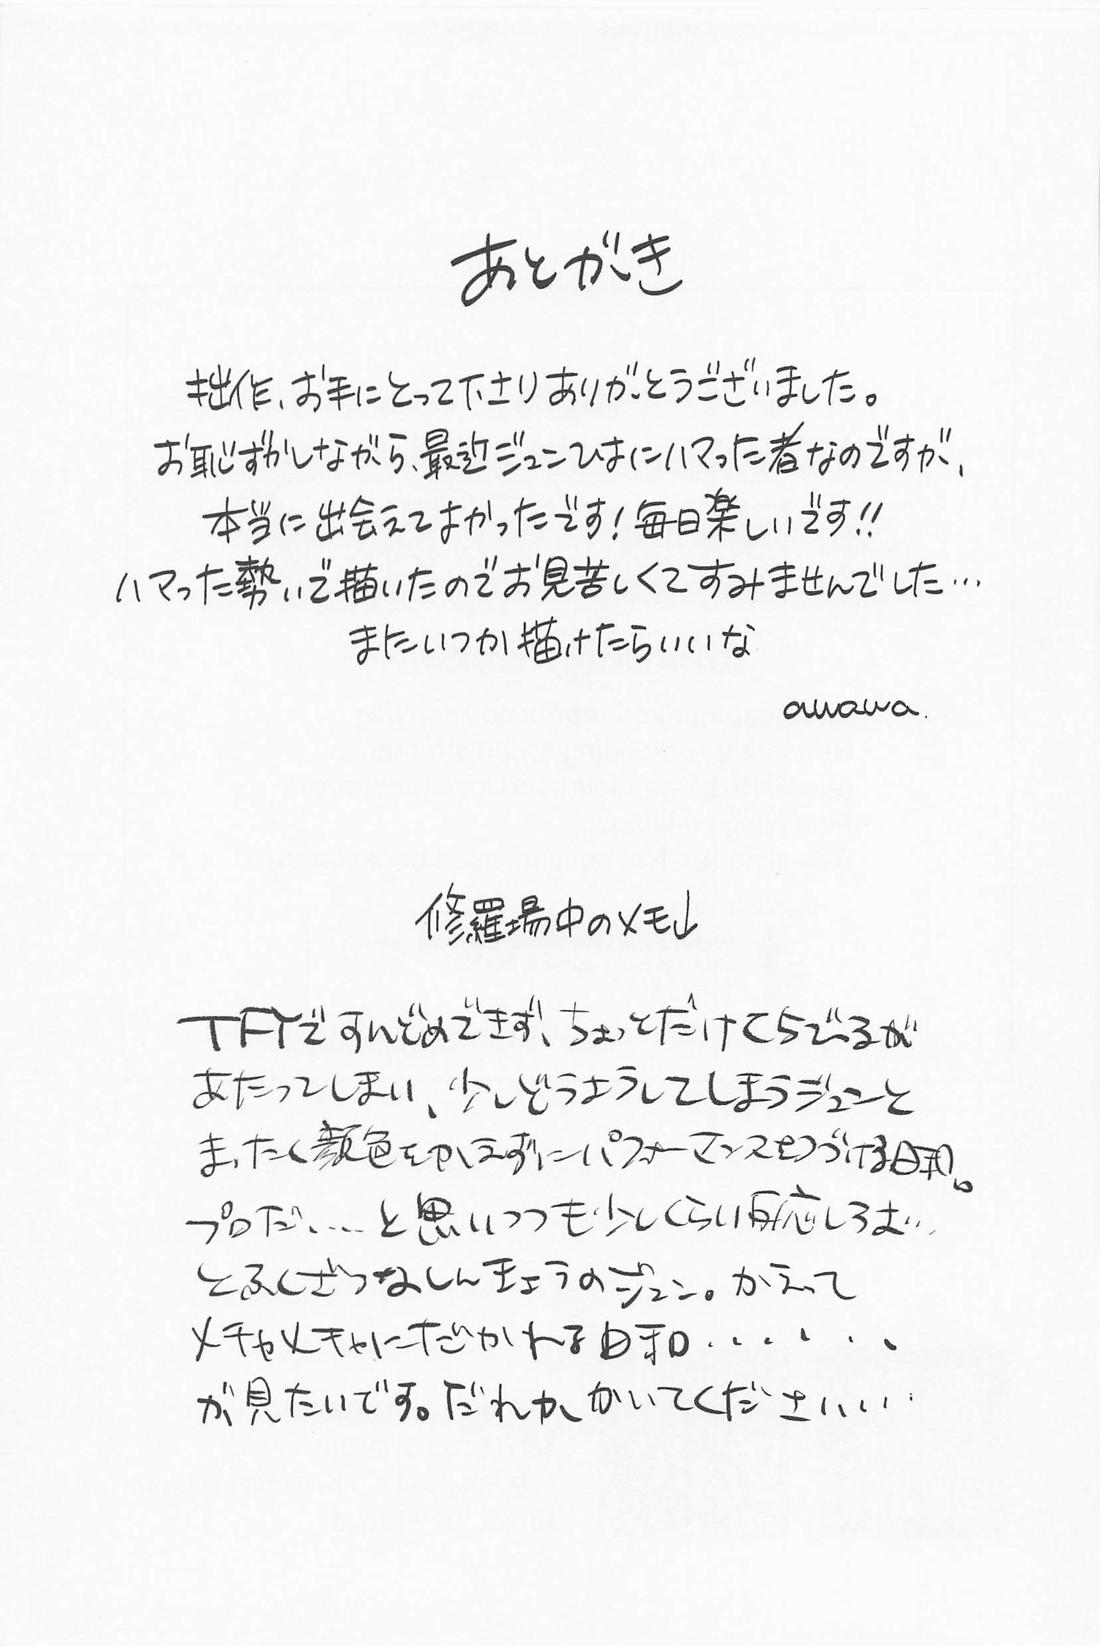 あとがき
拙作、お手にとって下さりありがとうございました。
お恥ずかしながら、最近ジュンひよにハマった者なのですが、
本当に出会えてよかったです！毎日楽しいです!!
ハマった勢いで描いたのでお見苦しくてすみませんでした…
またいつか描けたらいいな
awawa.
修羅場中のメモ↓
TFYですんどめできず、ちょっとだけくちびるが
あたってしまい、少しどうようしてしまうジュンと
まったく顔色をかえずにパフォーマンスをつづける日和。
プロだ……と思いつつも少しくらい反応しろよ…
とふくざつなしんきょうのジュン。かえって
メチャメチャにだかれる日和・・・・・・
が見たいです。だれかかいてください…